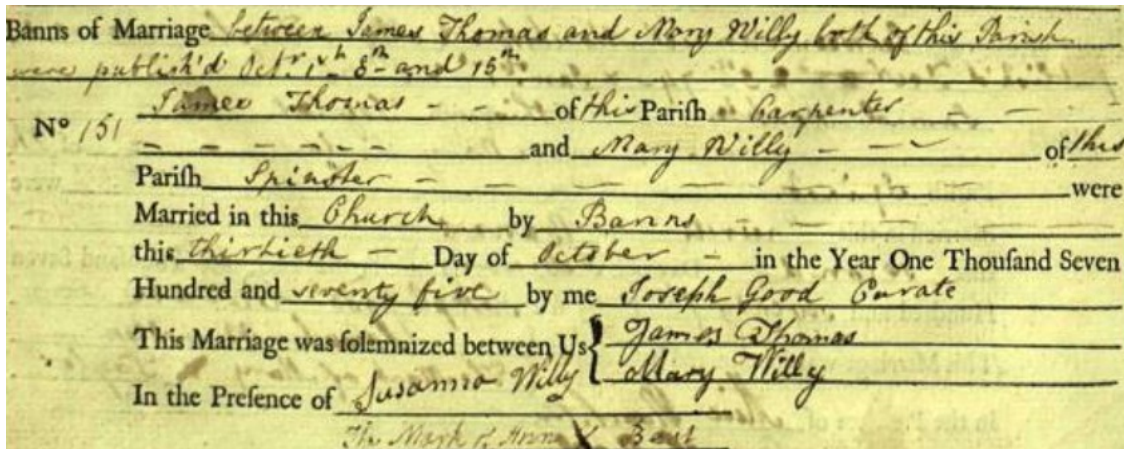 Banns of Marriage between James Thomas and Mary Willy both of this Parish
were publish'd Octr 1st 8th and 15th
James Thomas - - of this Parish Carpenter -
No 151
- - - - - - and Mary Willy - - - of this
Pariſh Spinster - - - - - - - were
Married in this Church by Banns - - - -
this thirtieth - Day of October - in the Year One Thouſand Seven
Hundred and seventy five by me Joseph Good Curate
This Marriage was ſolemnized between Us { James Thomas
Mary Willy
In the Preſence of Susanna Willy
The Mark of Anne X Bant